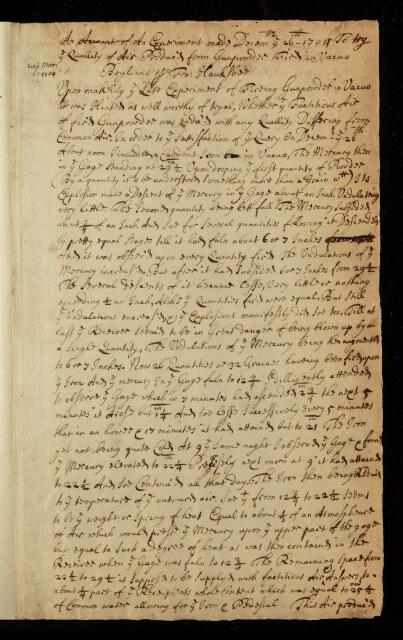 An Account of An Experiment made Decem: yᵉ 26ᵗʰ 1704 To try
yᵉ Quallity of Air Produced from Gunpowder Fired in Vacuo
Boyliano By Fra: Hauksbee
Upon makeing yᵉ Late Experiment of Fireing Gunpowder in Vacuo
it was Hinted as well worthy of tryal, Whether yᵉ Factitious Air
of fired Gunpowder was Endued with any Quallity Differing from
Common Air. In order to yᵉ Satisfaction of yᵉ Query On Decem: yᵉ 26ᵗʰ
About noon I included a Candent Iron in Vacuo, The Mercury then
in yᵉ Gage Standing at 29½ Upon droping yᵉ first quantity of Powder
(By a quantity is to be understood something more than a Grain wᵗ) Its
Explosion made a Descent of yᵉ Mercury in yᵉ Gage about an Inch, Undulating
very little. The Second quantity being fell The Mercury subsided
about an Inch And soe for Several quantities following it Descended
by pretty equal Stages till it had faln about 6 or 7 Inches
And it was observed upon every Quantity fired The Undulations of yᵉ
Mercury increased. But after it had Subsided 6 or 7 Inches from 29½
The Several descents of it became Less, Very little or nothing
exceeding ¼ an Inch, Altho yᵉ Quantities fired were equal. But Still
yᵉ Undulations encreased, yᵉ Explosions manifestly did soe too, Till at
last yᵉ Receiver seemed to be in Great danger of being blown up by
a Single Quantity, The Undulations of yᵉ Mercury being then augmented
to 6 or 7 Inches. Now 26 Quantities or 32 Graines haveing been fired upon
yᵉ Iron And yᵉ mercury in yᵉ Gage faln to 12¾ I Diligently attended
to observe yᵉ Gage which in 7 minutes had ascended 2¾ the next 5
minutes it Arose but 1¼ And soe Less Successively every 5 minutes
that in an hower & 15 minutes it had attained but to 21 The Iron
yet not being quite Cold At 9 yᵉ Same night I observed yᵉ Gage & found
yᵉ Mercury elevated to 22¼ Precisely next morn at 9 it had attained
to 22½ And soe Continued all that day. The Iron then being Reduced
to yᵉ temperature of yᵉ outward air. Soe yᵗ from 12¾ to 22½ Seems
to be yᵉ weight or Spring of heat Equal to about ⅓ of an Atmosphere
of Air which would presse yᵉ Mercury upon yᵉ upper part of the gage
but equal to Such a degree of heat as was then contained in the
Receiver when yᵉ Gage was faln to 12¾ The Remaining Space from
22½ to 29½ is Supposed to be Supply'd with factitious Air & Answers to
about ¼ part of yᵉ Recipients whole Content which was equal to 25¼
of Common water allowing for yᵉ Iron & Pedestal. This Air produced